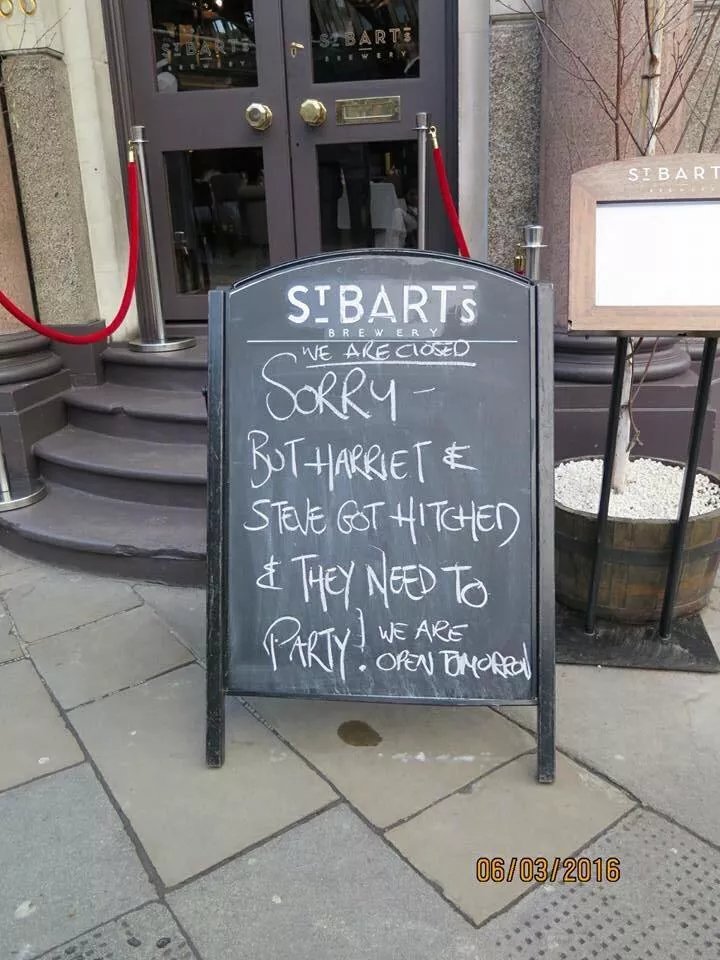 ST BARTS
BREWERY
ST BARTS
BREWERY
ST BART
ST BARTS
BREWERY
WE ARE CLOSED
SORRY -
BUT HARRIET &
STEVE GOT HITCHED
& THEY NEED TO
PARTY! WE ARE
OPEN TOMORROW
06/03/2016